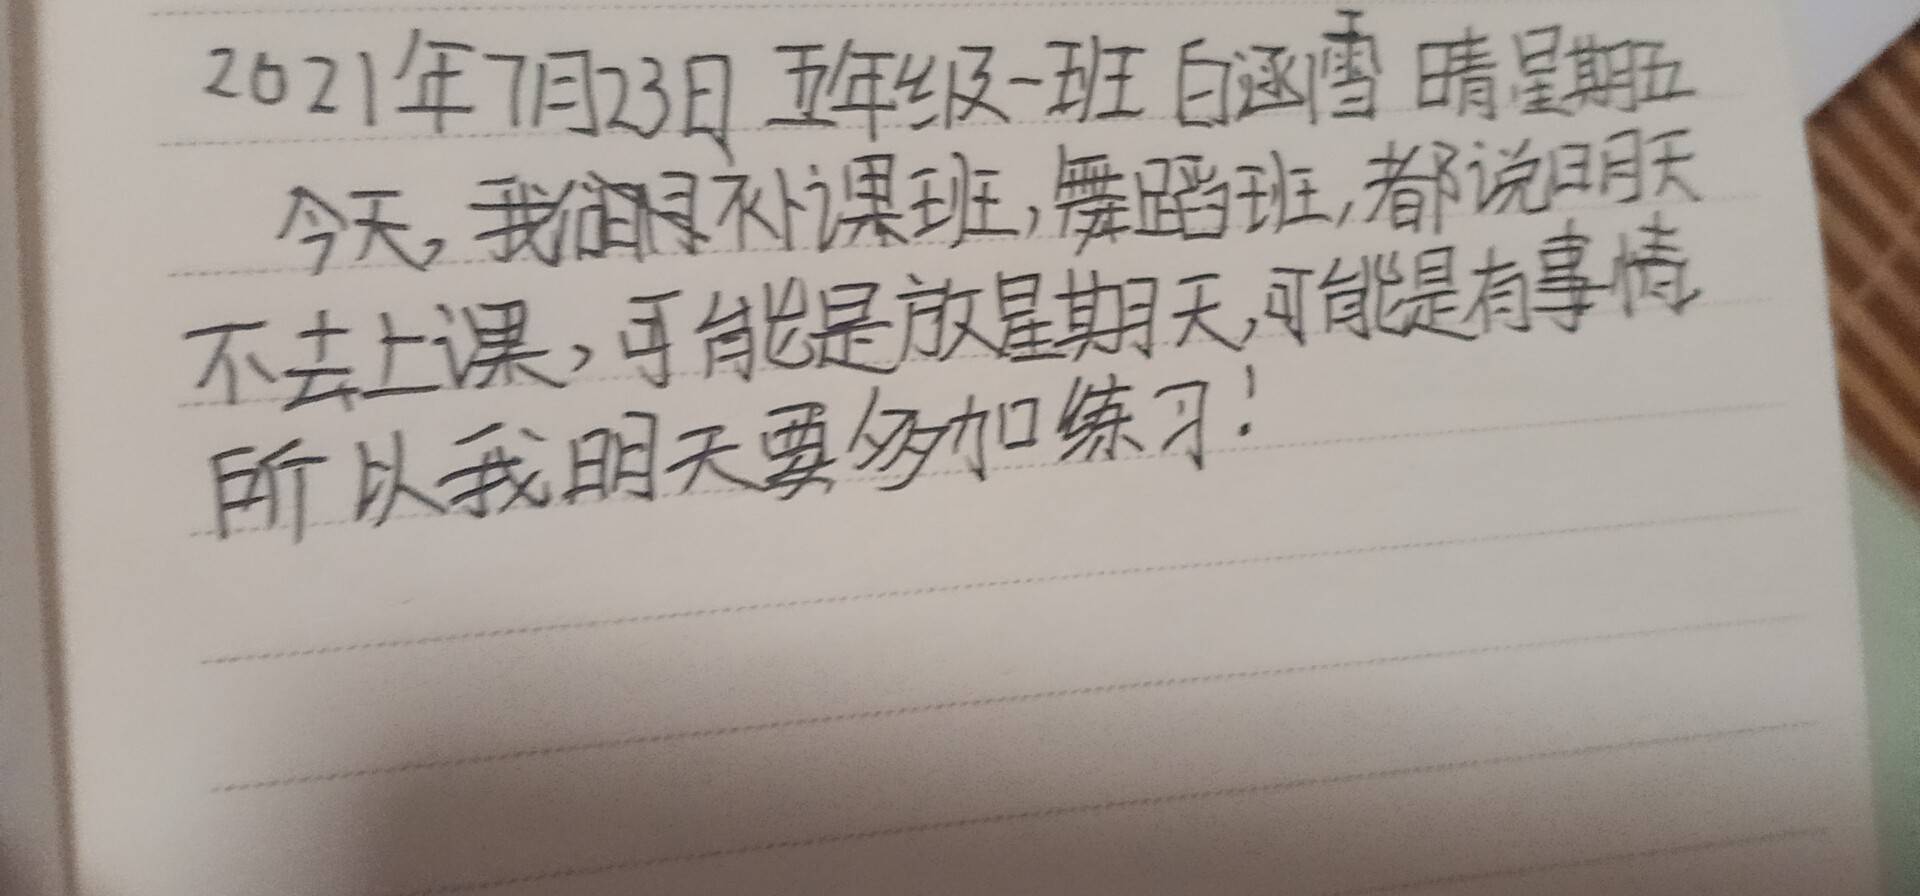 2021年7月23日 五年级一班 白涵雪 晴星期五
今天，我们的补课班，舞蹈班，都说明天
不去上课，可能是放星期天，可能是有事情
所以我明天要多加练习！